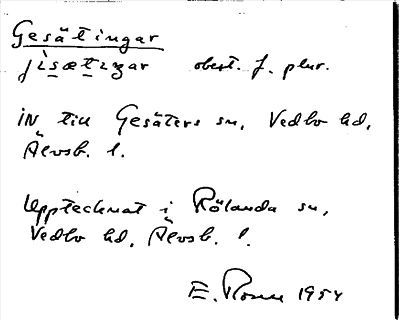 Gesätingar
jìsætıŋar obest. f. plur.
inv till Gesäters sn, Vedbo hd,
Älvsb. l.
Upptecknat i Rölanda sn,
Vedbo hd, Älvsb. l.
E. Rosell 1954